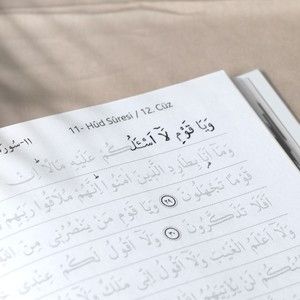 11- Hûd Sûresi / 12. Cüz
وَيَا قَوْمِ لَٓا اَسْـَٔلُكُمْ عَلَيْهِ مَالًا
وَمَٓا اَنَا۬ بِطَارِدِ الَّذ۪ينَ اٰمَنُوا اِنَّهُمْ مُلَاقُوا رَبِّهِمْ
قَوْمًا تَجْهَلُونَ ﴿٢٩﴾ وَيَا قَوْمِ مَنْ يَنْصُرُن۪ي مِنَ
اَفَلَا تَذَكَّرُونَ ﴿٣٠﴾ وَلَٓا اَقُولُ لَكُمْ عِنْد۪ي
وَلَٓا اَعْلَمُ الْغَيْبَ وَلَٓا اَقُولُ اِنّ۪ي مَلَكٌ وَلَٓا